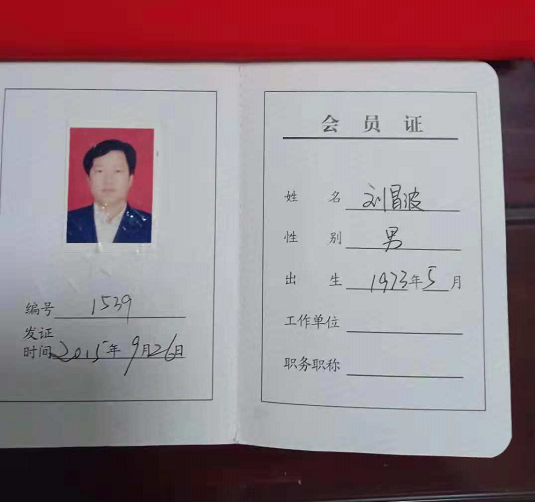 编号 1539
发证
时间 2015年9月26日
会员证
姓名 刘冒波
性别 男
出生 1973年5月
工作单位
职务职称